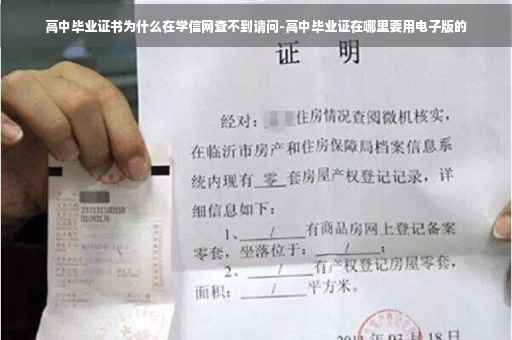 高中毕业证书为什么在学信网查不到请问-高中毕业证在哪里要用电子版的
证 明
经对：住房情况查阅微机核实，
在临沂市房产和住房保障局档案信息系
统内现有 零 套房屋产权登记记录，详
细信息如下：
1、 / 有商品房网上登记备案
零套，坐落位于： / ；
2、 / 有产权登记房屋零套，
面积： / 平方米。
年03月18日